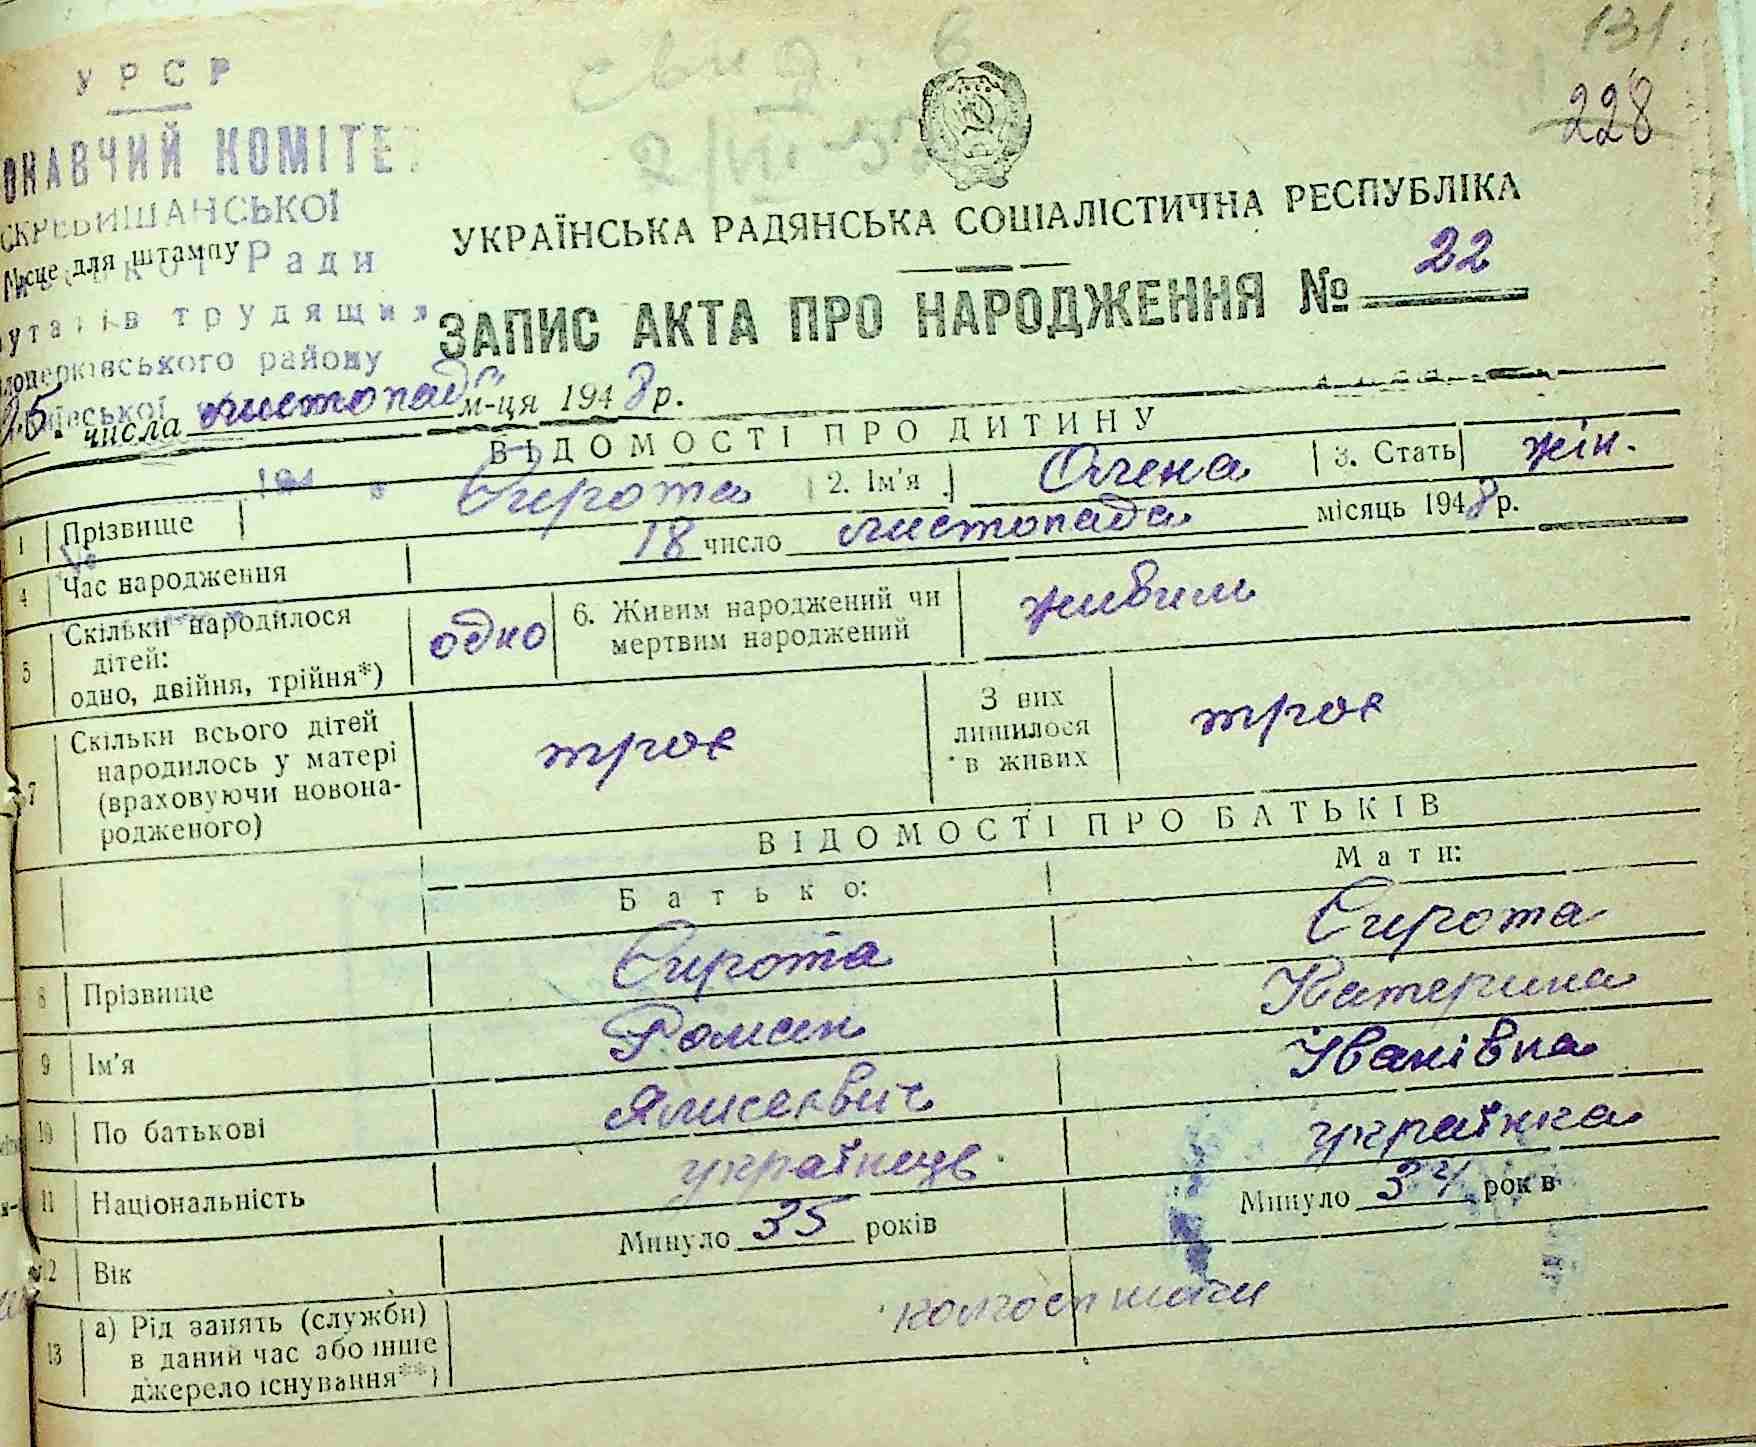 131.
228
свид. в
УРСР
ОНАВЧИЙ КОМІТЕ
СКРЕБИШАНСЬКОЇ
Місце для штампу
Ради
утатів трудящих
лоцерківського району
ївської
УКРАЇНСЬКА РАДЯНСЬКА СОЦІАЛІСТИЧНА РЕСПУБЛІКА
ЗАПИС АКТА ПРО НАРОДЖЕННЯ № 22
25. числа листопада м-ця 1948 р.
ВІДОМОСТІ ПРО ДИТИНУ
1 Прізвище Сирота 2. Ім'я Олена 3. Стать жін.
4 Час народження 18 число листопада місяць 1948 р.
5 Скільки народилося дітей: одно, двійня, трійня*) одно 6. Живим народжений чи мертвим народжений живим
7 Скільки всього дітей народилось у матері (враховуючи новонародженого) троє З них лишилося в живих троє
ВІДОМОСТІ ПРО БАТЬКІВ
Батько: Мати:
8 Прізвище Сирота Сирота
9 Ім'я Роман Катерина
10 По батькові Ялисеєвич Іванівна
11 Національність українець українка
12 Вік Минуло 35 років Минуло 34 років
13 а) Рід занять (служби) в даний час або інше джерело існування**) колгоспники